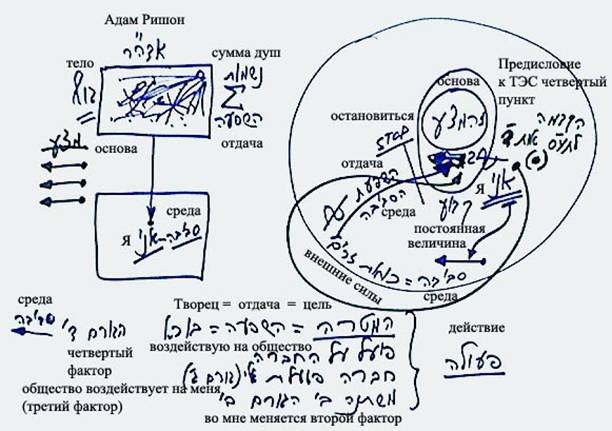 Адам Ришон
אדה"ר
тело
גוף
сумма душ
נשמות
Σ
השפעה
отдача
מצע
основа
среда
Я
אני
סביבה
Предисловие
к ТЭС четвертый
пункт
הקדמה
לתע"ס אות ד
основа
המצע
остановиться
STOP
отдача
השפעת
הסביבה
среда
Я
אני
קבוע
постоянная
величина
внешние силы
סביבה = כוחות זרים
среда
среда
סביבה
הגורם ד'
четвертый
фактор
общество воздействует на меня
(третий фактор)
Творец = отдача = цель
המטרה = השפעה = בורא
воздействую на общество
פועל על החברה
חברה פועלת עלי (גורם ג')
משתנה בי הגורם ב'
во мне меняется второй фактор
действие
פעולה